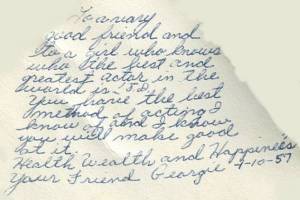 To a very
good friend and
to a girl who knows
who the best and
greatest actor in the
world is!
You have the best
method of acting I
know and I know
you will make good
at it.
Health Wealth and Happiness
Your Friend Georgie 7-10-57